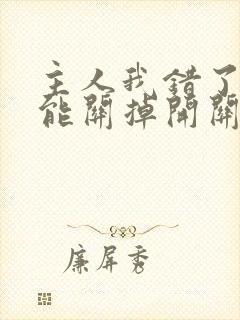 主人我错了
能關掉開關
廉屏秀